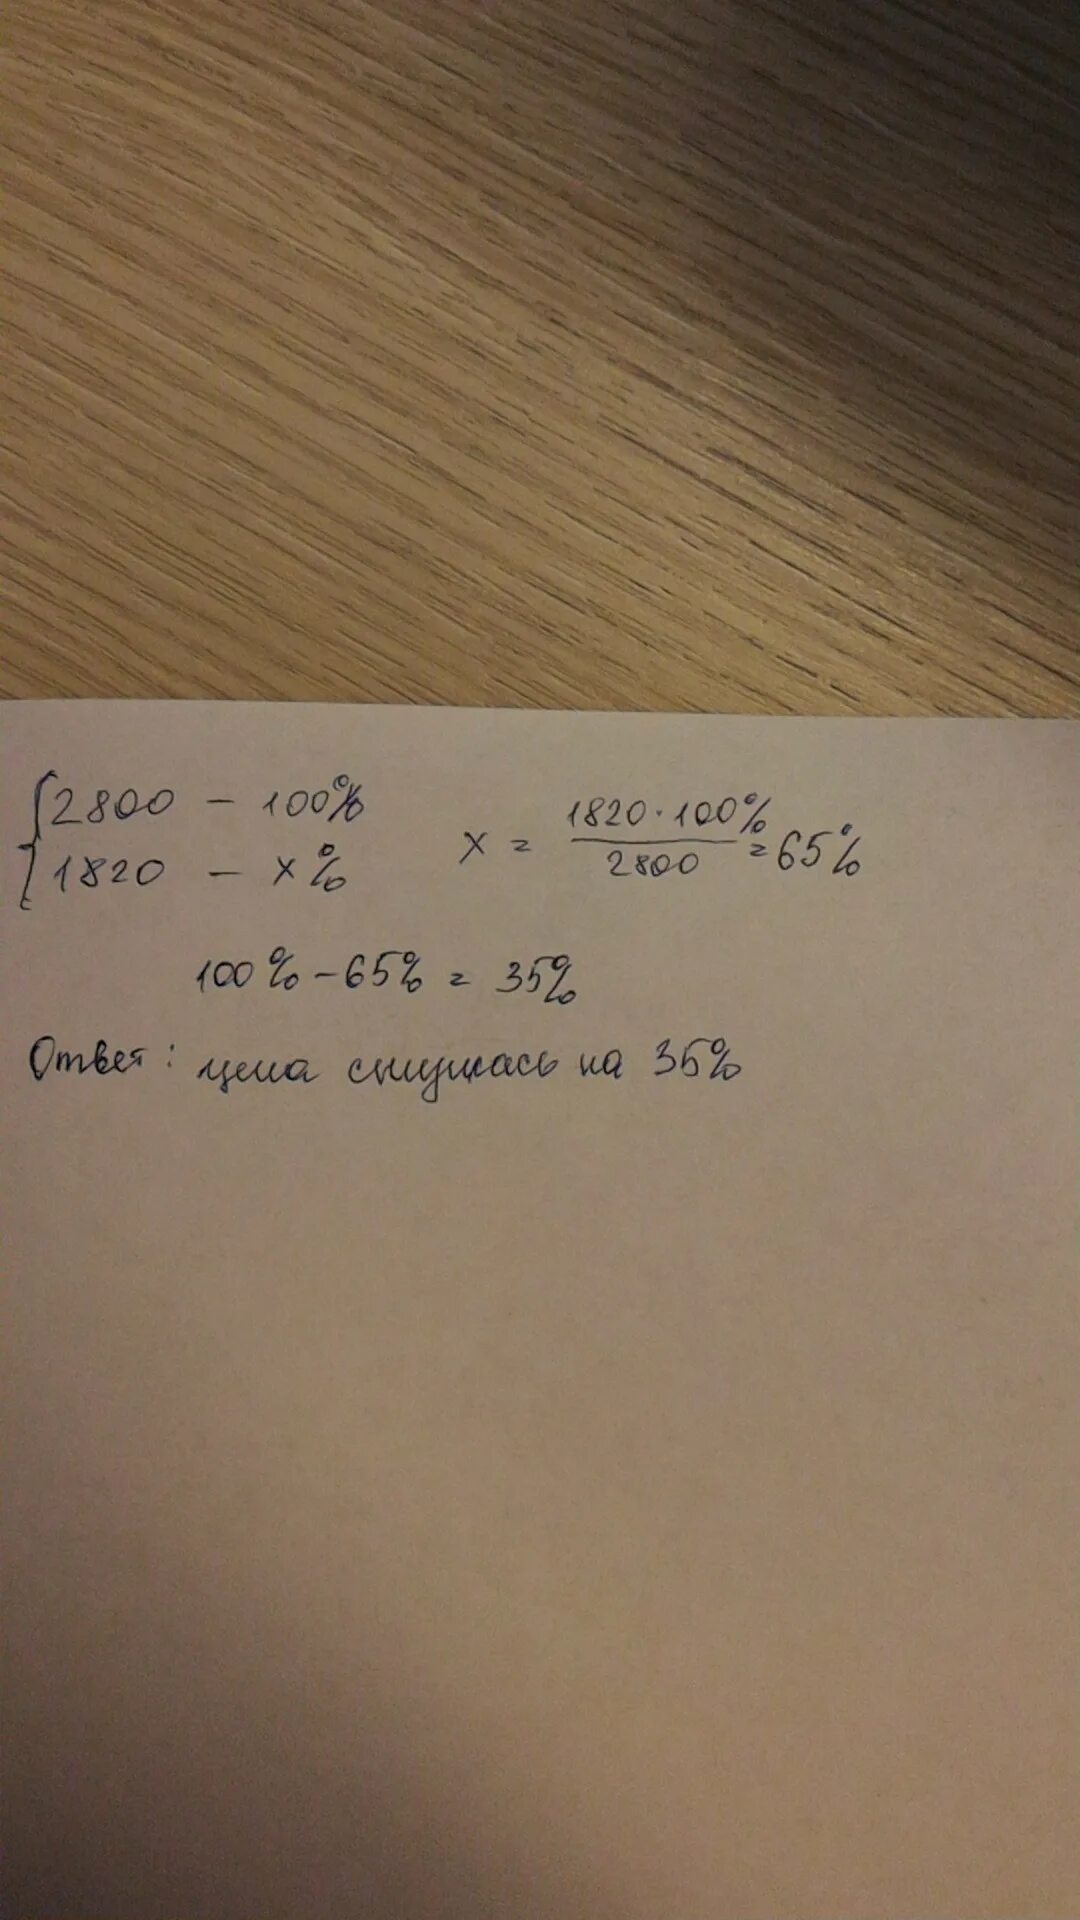 2800 – 100%
1820 – x%
x = 1820 · 100% / 2800 = 65%
100% – 65% = 35%
Ответ: цена снизилась на 35%